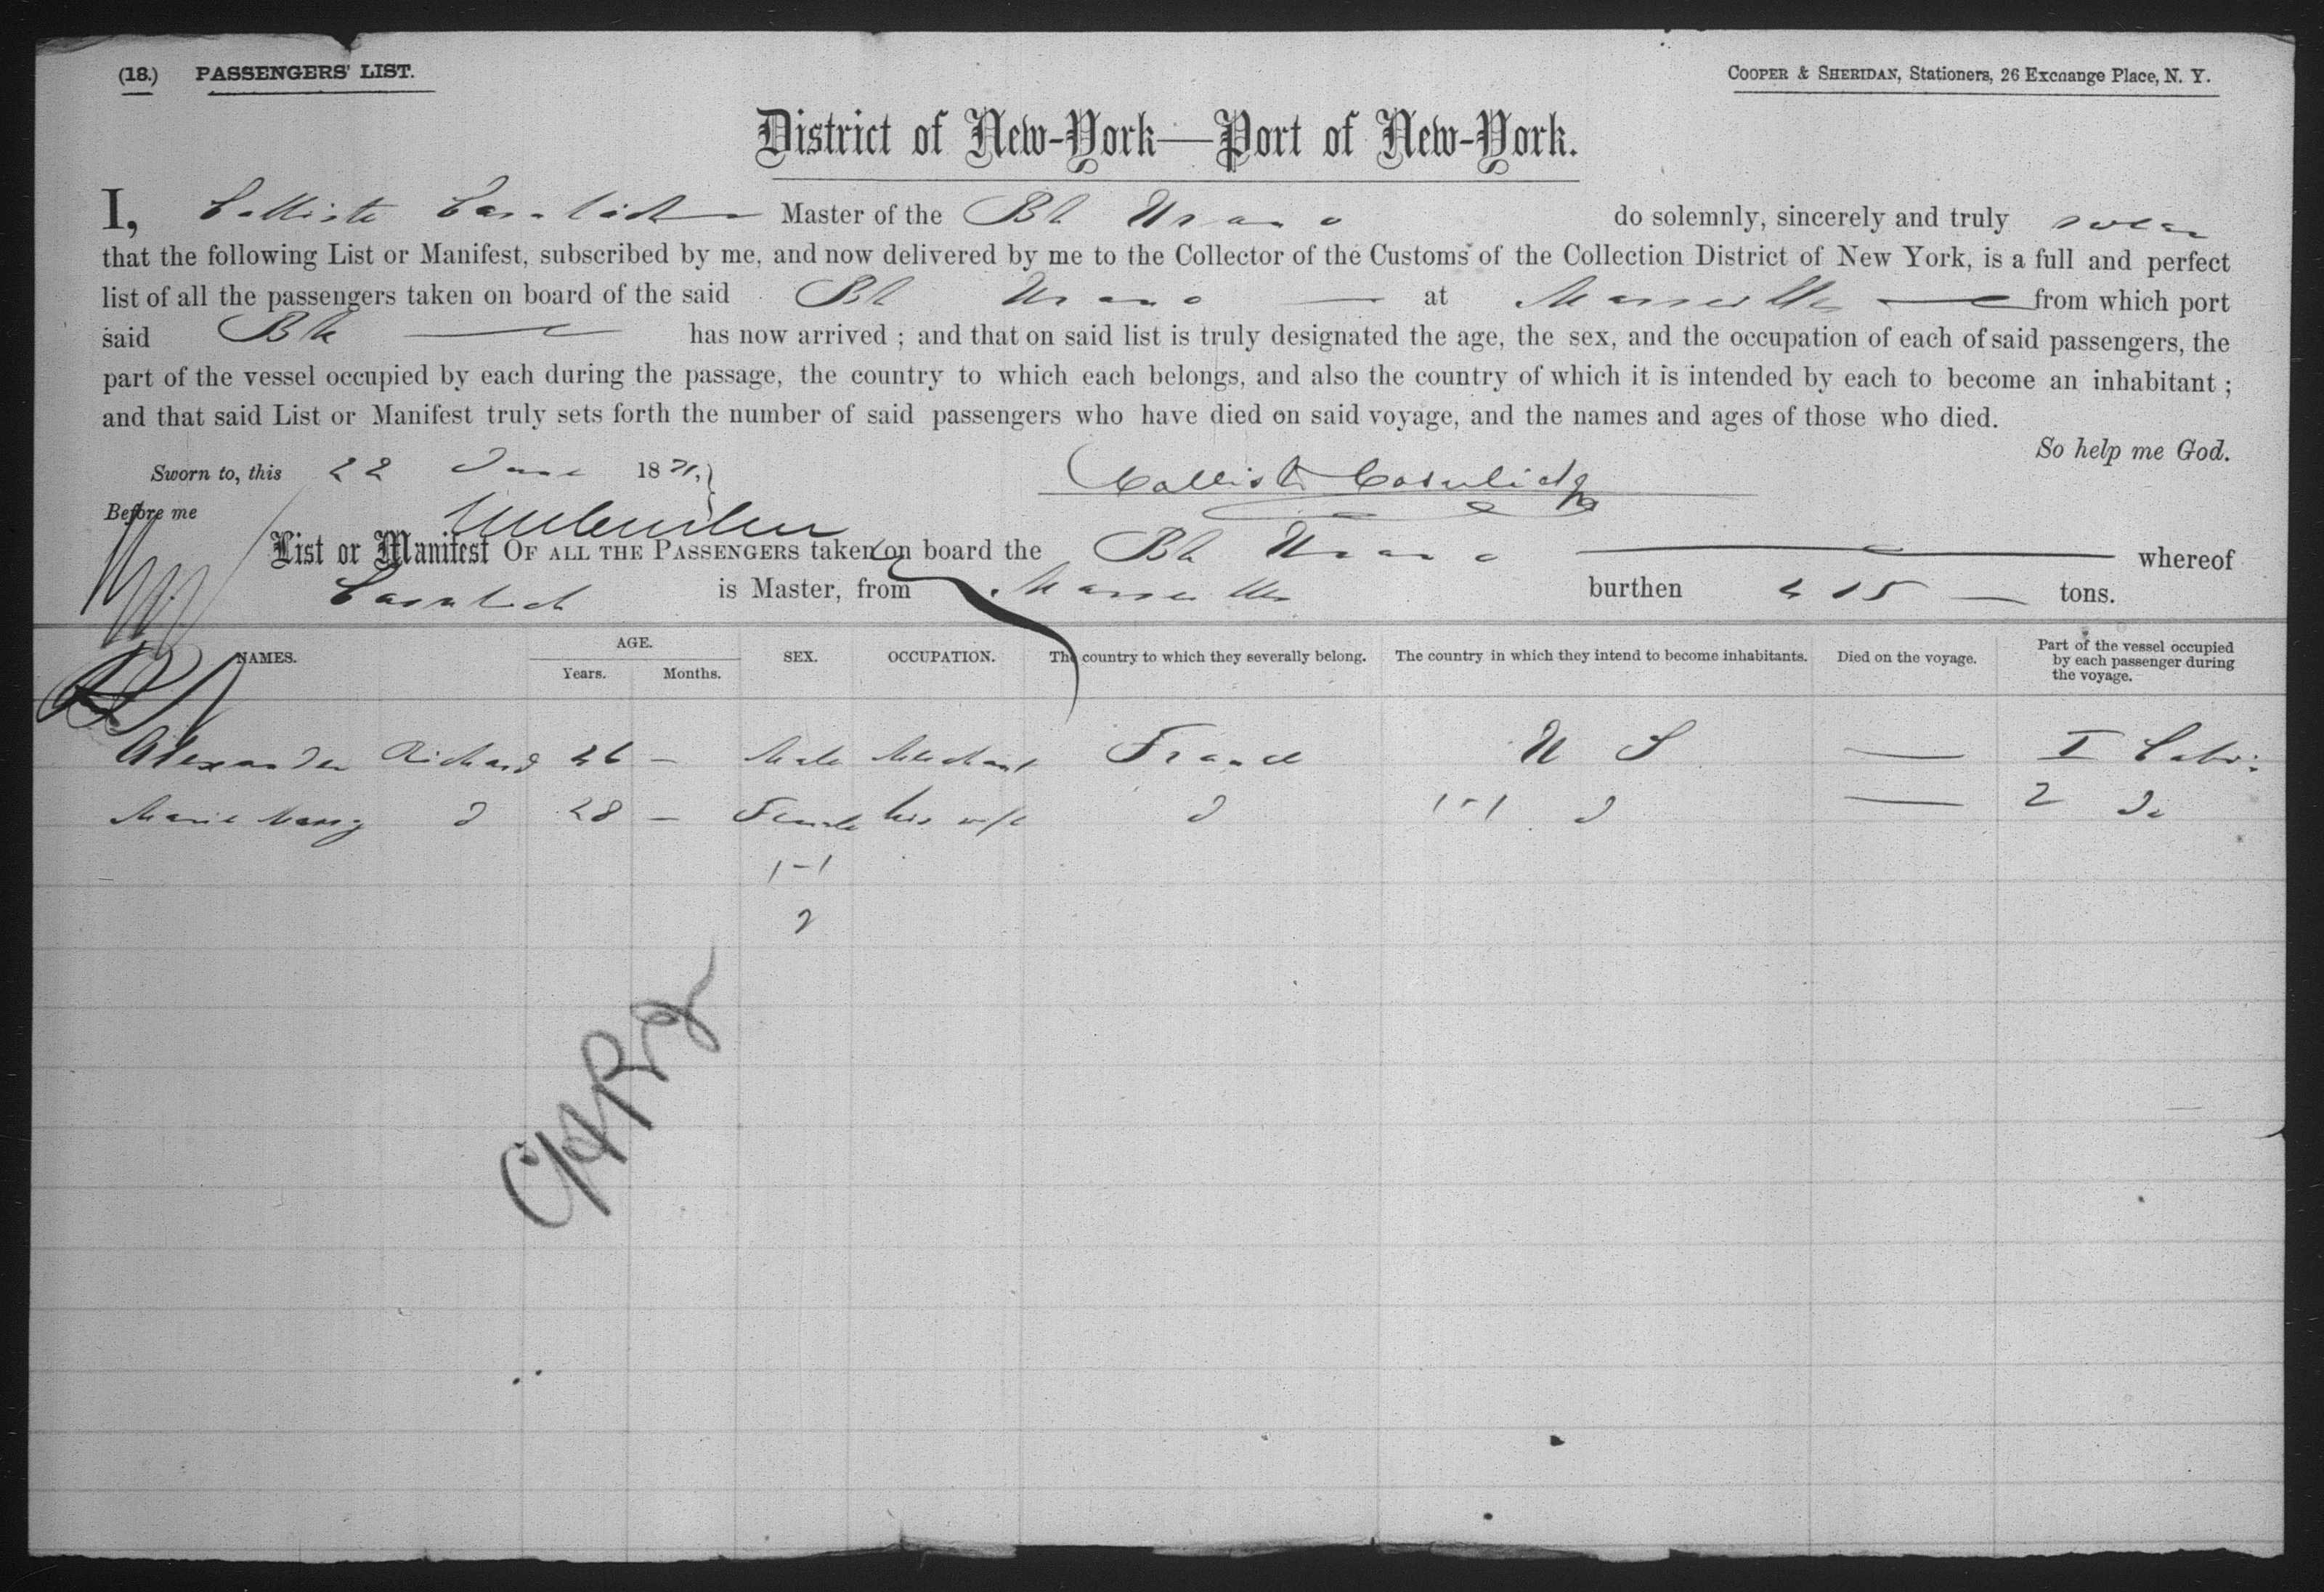 (18.) PASSENGERS' LIST.
COOPER & SHERIDAN, Stationers, 26 Exchange Place, N. Y.
District of New-York—Port of New-York.
I, Callisto Cosulich Master of the Bk Urano do solemnly, sincerely and truly swear
that the following List or Manifest, subscribed by me, and now delivered by me to the Collector of the Customs of the Collection District of New York, is a full and perfect
list of all the passengers taken on board of the said Bk Urano at Marseilles from which port
said Bk has now arrived ; and that on said list is truly designated the age, the sex, and the occupation of each of said passengers, the
part of the vessel occupied by each during the passage, the country to which each belongs, and also the country of which it is intended by each to become an inhabitant ;
and that said List or Manifest truly sets forth the number of said passengers who have died on said voyage, and the names and ages of those who died.
So help me God.
Sworn to, this 22 June 1871,
Callisto Cosulich
Before me
List or Manifest OF ALL THE PASSENGERS taken on board the Bk Urano whereof
Cosulich is Master, from Marseilles burthen 415 tons.
NAMES. AGE. Years. Months. SEX. OCCUPATION. The country to which they severally belong. The country in which they intend to become inhabitants. Died on the voyage. Part of the vessel occupied by each passenger during the voyage.
Alexander Richard 26 — Male Merchant France U S — 1 Cabin
Marie Nancy d 28 — Female his wife d 1-1 d — 2 Do
1-1
2